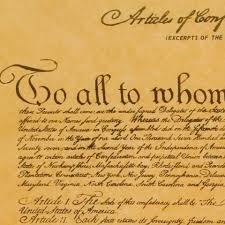 Articles of Con
(EXCERPTS OF THE
To all to whom
these Presents shall come, we the under signed Delegates of the
affixed to our Names send greeting. Whereas the Delegates of the
United States of America in Congress assembled did on the fifteenth d
of November in the Year of our Lord One Thousand Seven Hundred
Seventy seven, and in the Second Year of the Independence of
agree to certain articles of Confederation and perpetual Union between
States of Newhampshire, Massachusetts-bay, Rhode Island and Provide
Plantations, Connecticut, New York, New Jersey, Pennsylvania, Delawa
Maryland, Virginia, North Carolina, South Carolina and Georgia
Article I. The Stile of this confederacy shall be "The
United States of America.
Article II. Each state retains its sovereignty, freedom and